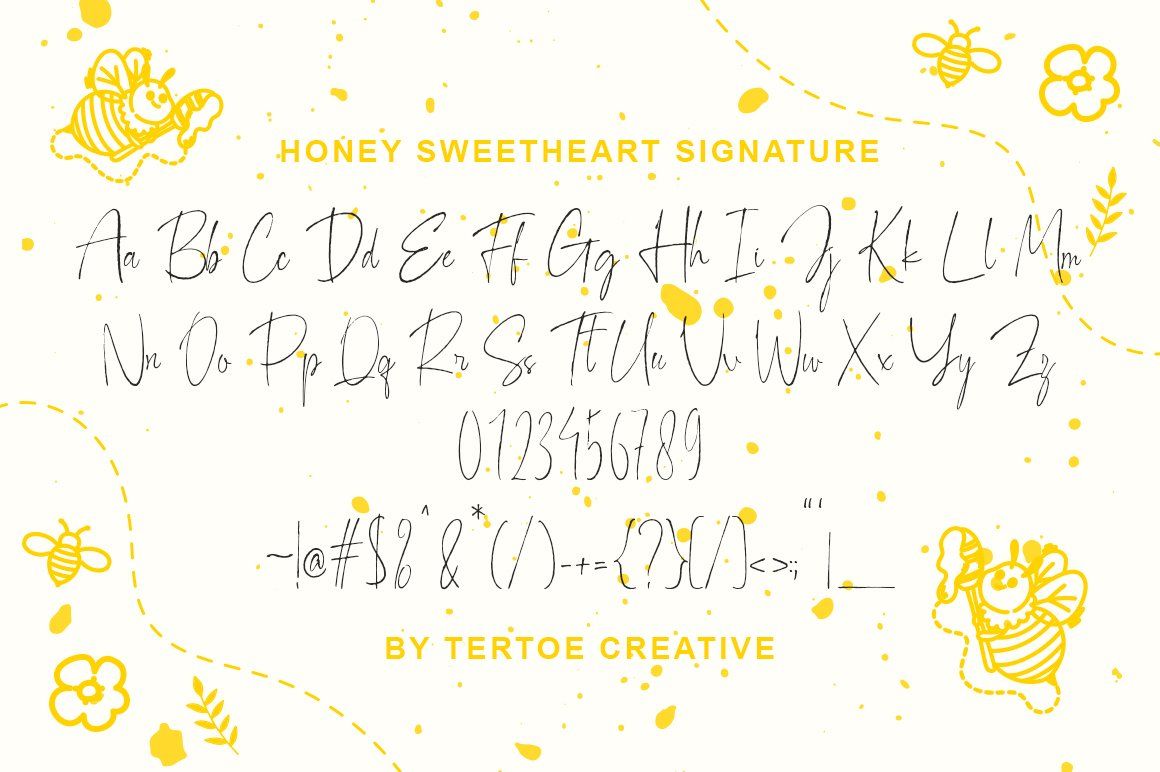 HONEY SWEETHEART SIGNATURE
Aa Bb Cc Dd Ee Ff Gg Hh Ii Jj Kk Ll Mm
Nn Oo Pp Qq Rr Ss Tt Uu Vv Ww Xx Yy Zz
0123456789
~!@#$%^&*(/)-+={?}[/]<>:;"'|_
BY TERTOE CREATIVE